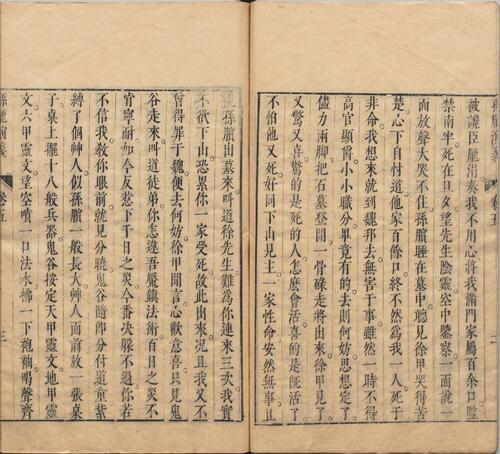 被讒臣龐涓奏我不用心將我滿門家屬百餘口監
禁南半死在旦夕望先生陰靈空中鑒察一面說一
面放聲大哭不住孫臏睡在墓中聽見徐甲哭得苦
楚心下自忖道他家百餘口終不然為我一人死于
非命我想來就到魏邦去無害于事雖然一時不得
高官顯爵小小職分畢竟有的去則何妨思想定了
儘力兩脚把石墓登開一骨碌走將出來徐甲見了
又驚又喜驚的是死的人怎麼會活喜的是既活了
不怕他又死好同下山見王一家性命安然無事且
說孫臏出墓來叫道徐先生難為你連來三次我實
不欲下山恐累你一家受死故此出來况且我又不
曾得罪于魏便去何妨徐甲聞言心歡意喜只見鬼
谷走來叫道徒弟你怎違吾魘鎮法術百日之災不
肯寧耐如今反惹下千日之災今番決躲不過你若
不信我教你眼前就見分曉鬼谷隨即分付道童紮
縛了個艸人似孫臏一般長大艸人面前放一張桌
子桌上擺十八般兵器鬼谷按定天甲靈文地甲靈
文六甲靈文望空噴一口法水拂一下袍袖喝聲齊
孫龐演義 卷五 三